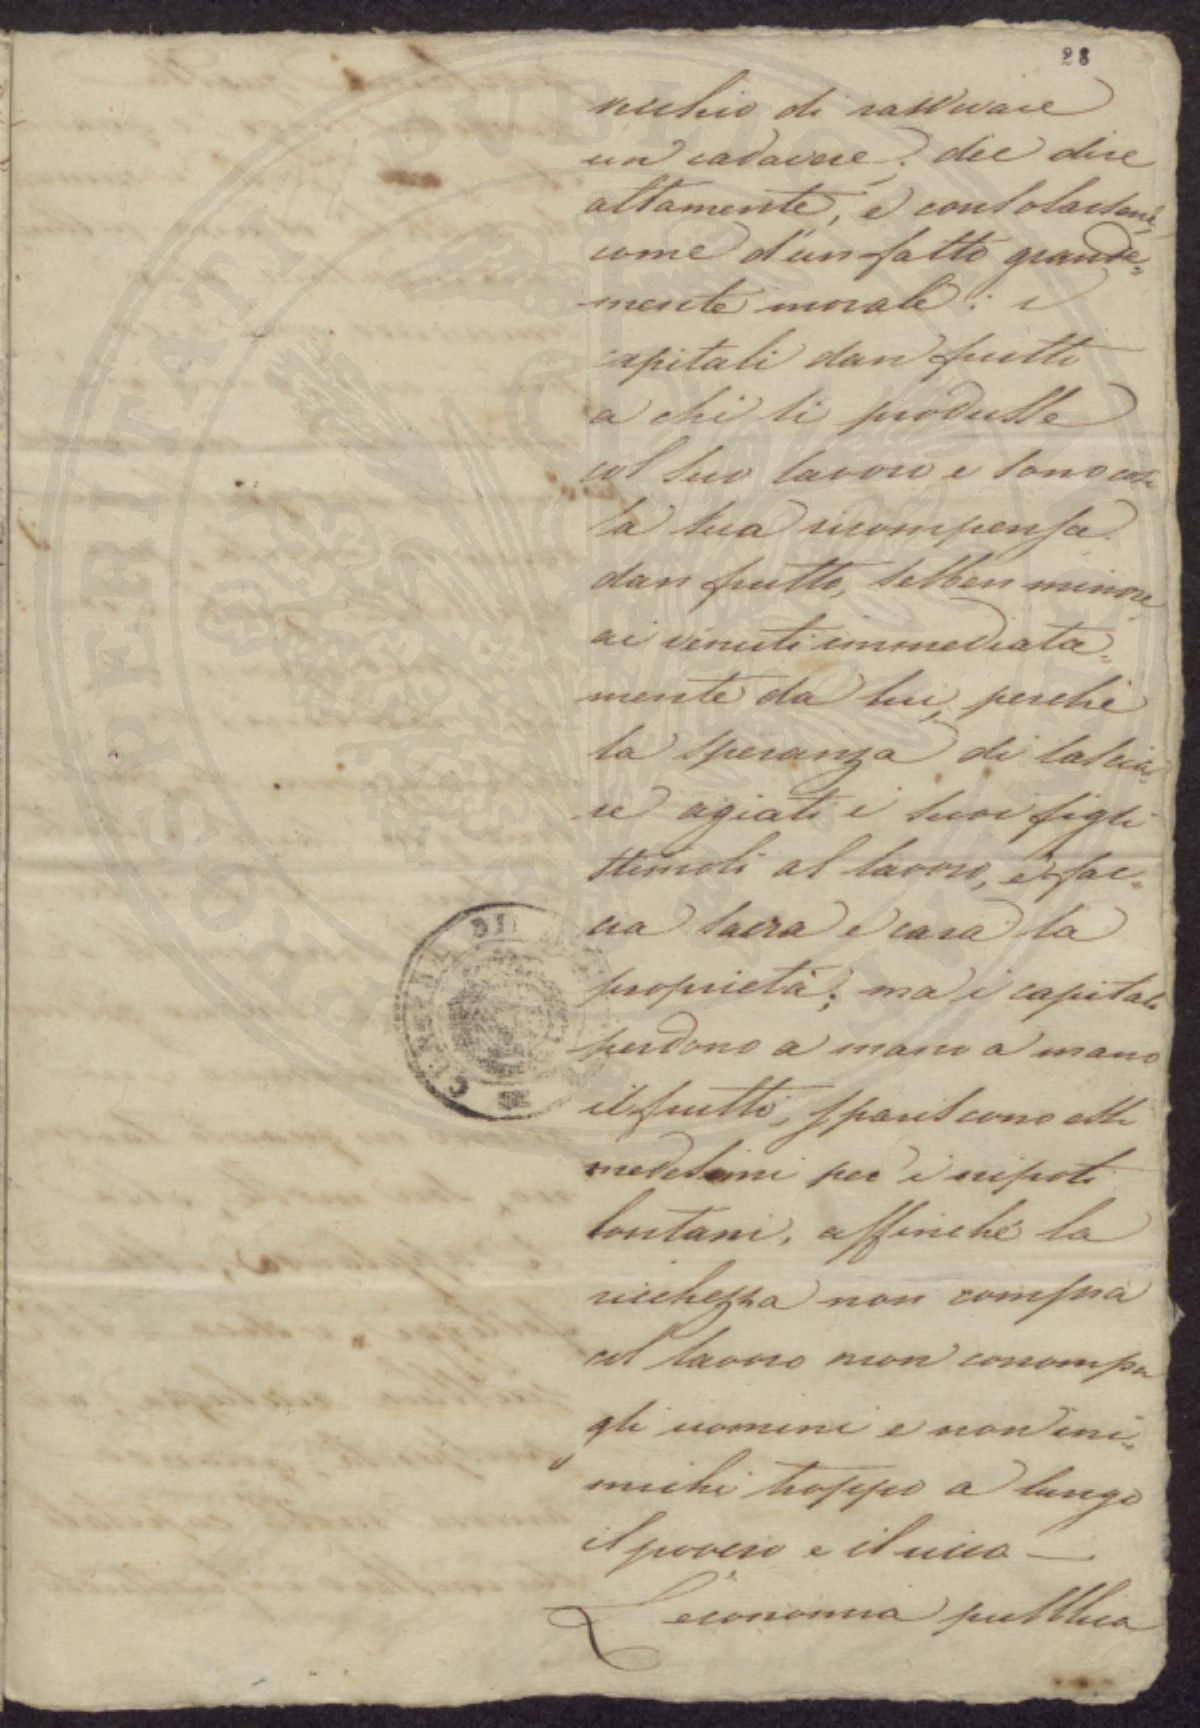 28
nicchio di ravvivare
un cadavere; dee dire
altamente, e consolarsene,
come d'un fatto grande=
mente morale: i
capitali dan frutto
a chi li produsse
col suo lavoro e sono così
la sua ricompensa
dan frutto, sebben minore
ai venuti immediata=
mente da lui, perchè
la speranza di lascia=
re agiati i suoi figli
stimoli al lavoro, e fac=
cia sacra e cara la
proprietà; ma i capitali
perdono a mano a mano
il frutto, spariscono essi
medesimi per i nipoti
lontani, affinchè la
ricchezza non compra
col lavoro non corrompa
gli uomini e non ini=
michi troppo a lungo
il povero e il ricco —
L'economia pubblica
PVBLICAE
PROSPERITATI